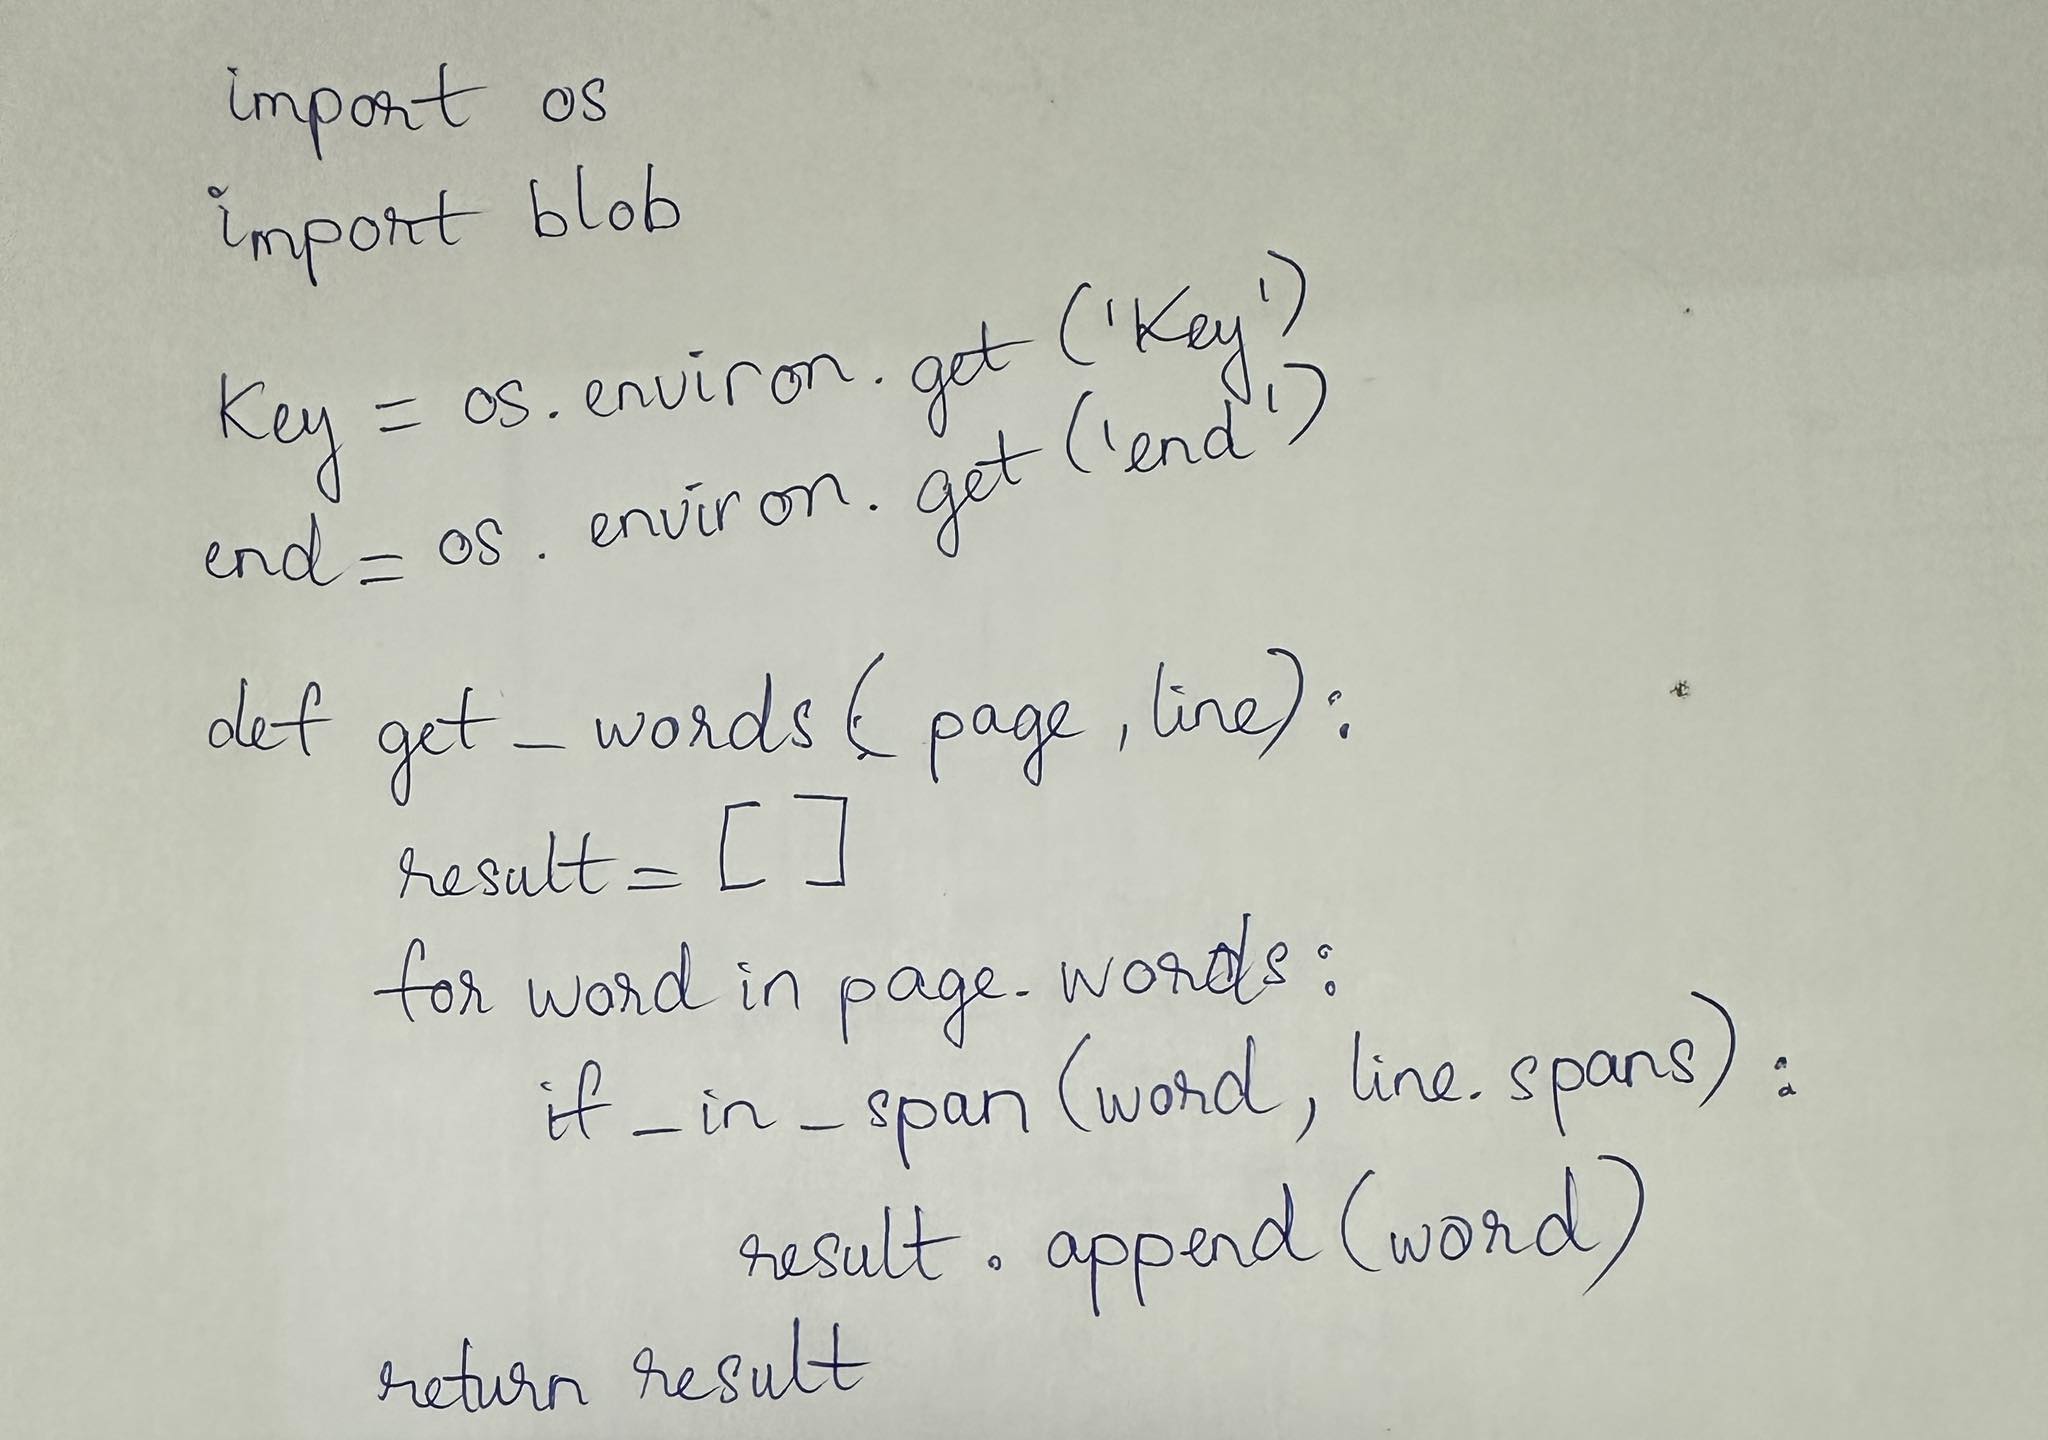 import os
import blob
Key = os.environ.get('Key')
end = os.environ.get('end')
def get_words(page, line):
result = []
for word in page.words:
if_in_span(word, line.spans):
result.append(word)
return result